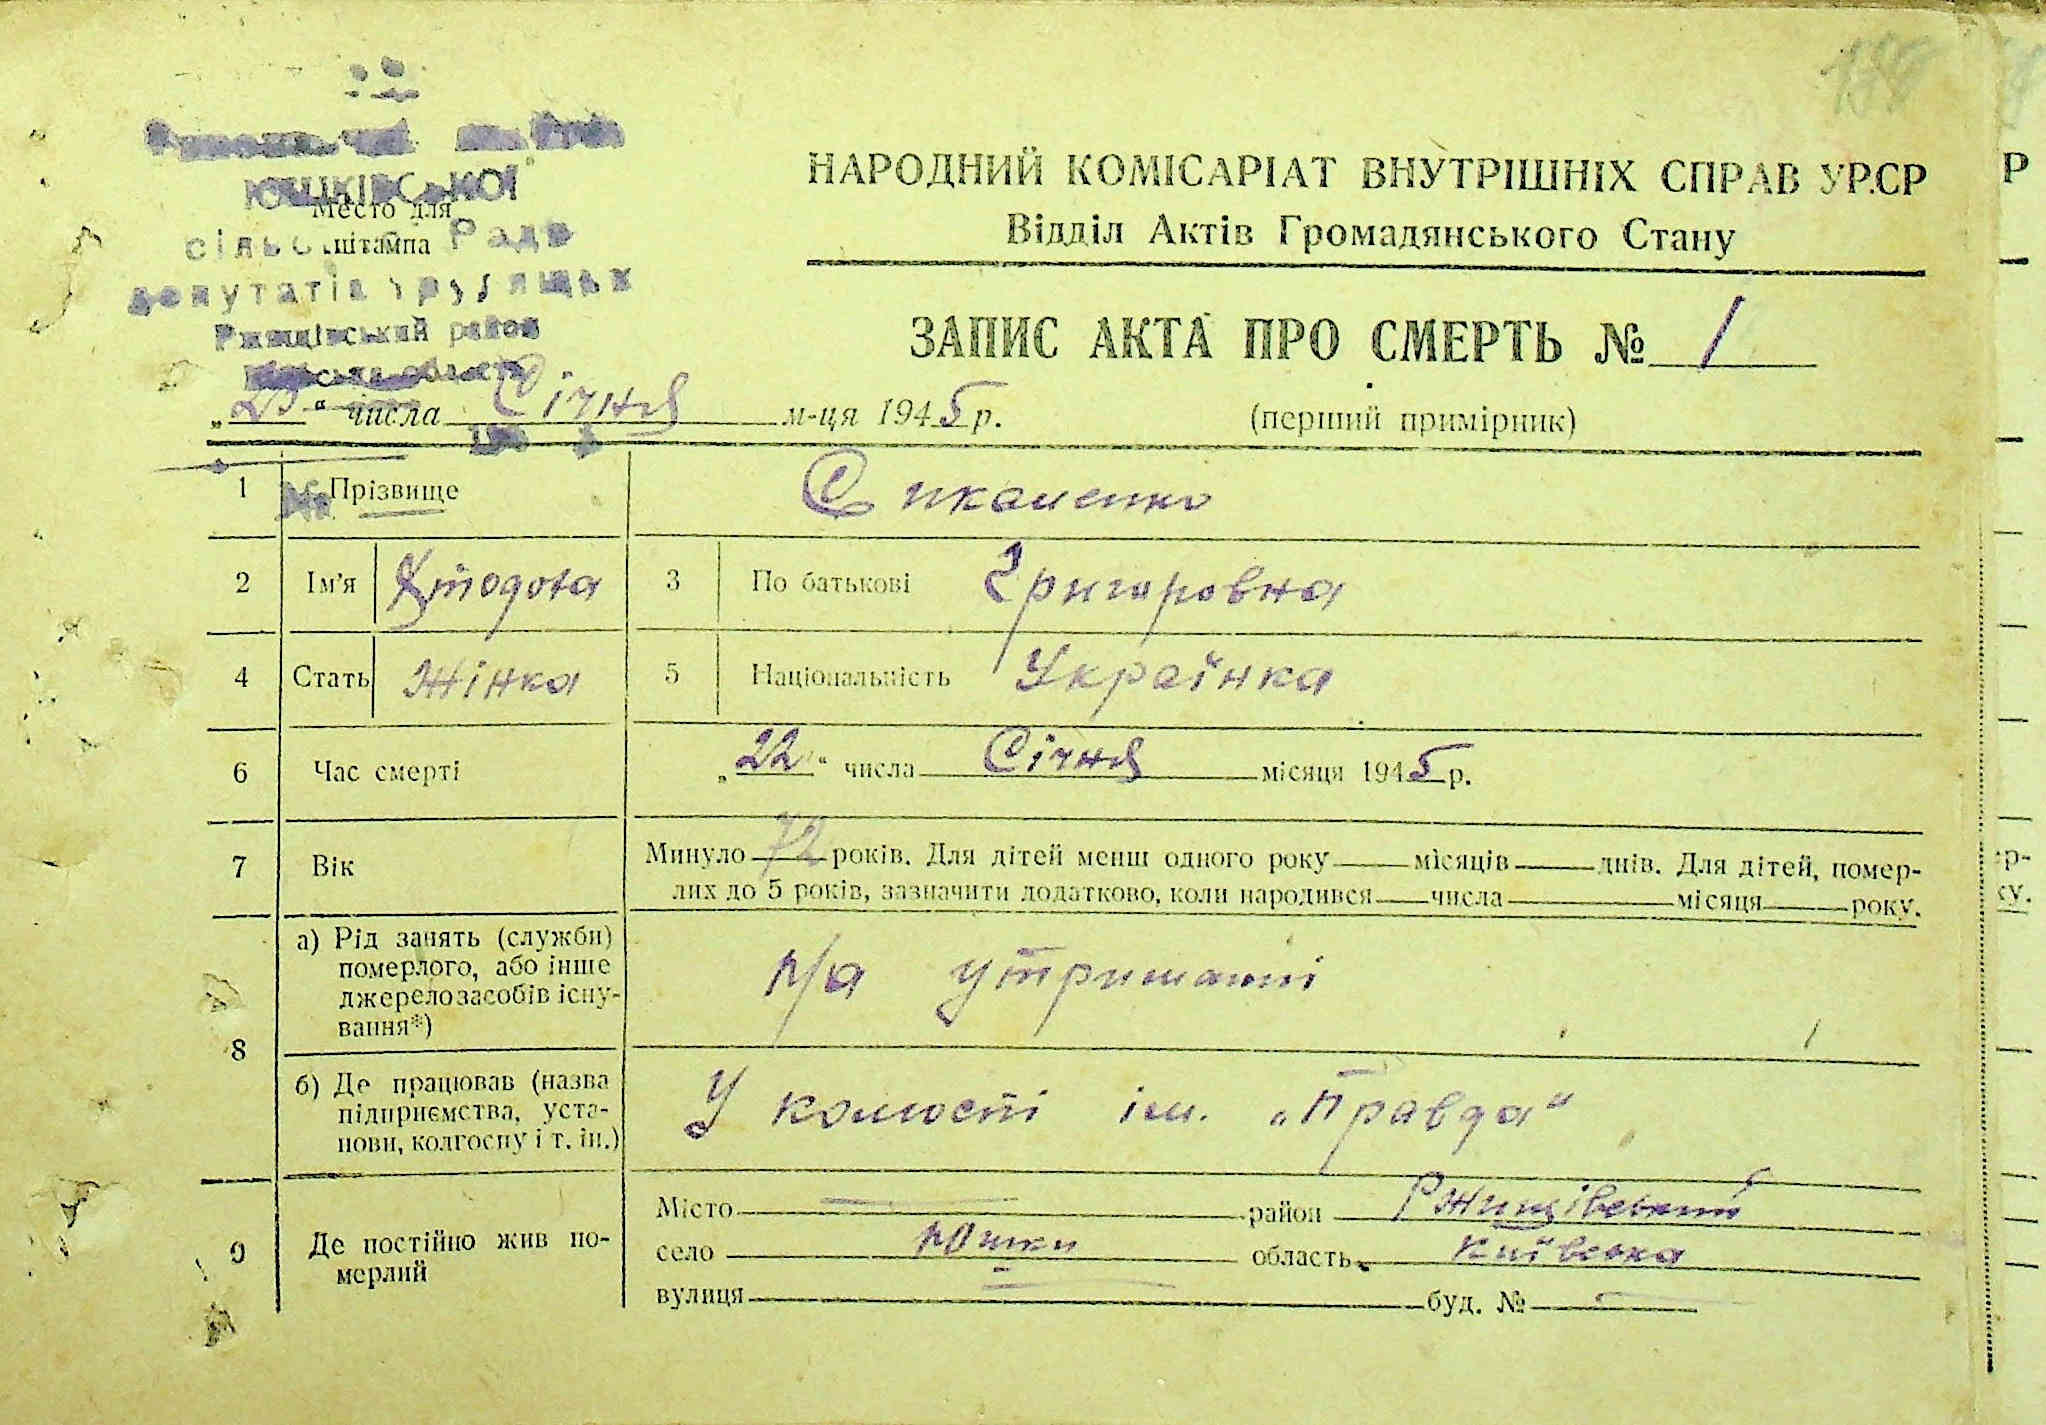 188
ЮШКІВСЬКОЇ
Место для
сільської Ради
штампа
депутатів трудящих
Ржищівський район
НАРОДНИЙ КОМІСАРІАТ ВНУТРІШНІХ СПРАВ УРСР
Відділ Актів Громадянського Стану
ЗАПИС АКТА ПРО СМЕРТЬ № 1
„25“ числа Січня м-ця 1945 р.
(перший примірник)
1 Прізвище
2 Ім'я 3 По батькові Григоровна
4 Стать Жінка 5 Національність Українка
6 Час смерті „22“ числа Січня місяця 1945 р.
7 Вік Минуло 72 років. Для дітей менш одного року місяців днів. Для дітей, помер-
лих до 5 років, зазначити додатково, коли народився числа місяця року.
8 а) Рід занять (служби)
померлого, або інше
джерело засобів існу-
вання*)
н/а утриманні
б) Де працював (назва
підприємства, уста-
нови, колгоспу і т. ін.)
У колгоспі ім. „Правда“
9 Де постійно жив по-
мерлий
Місто район Ржищівський
село Юшки область Київська
вулиця буд. №